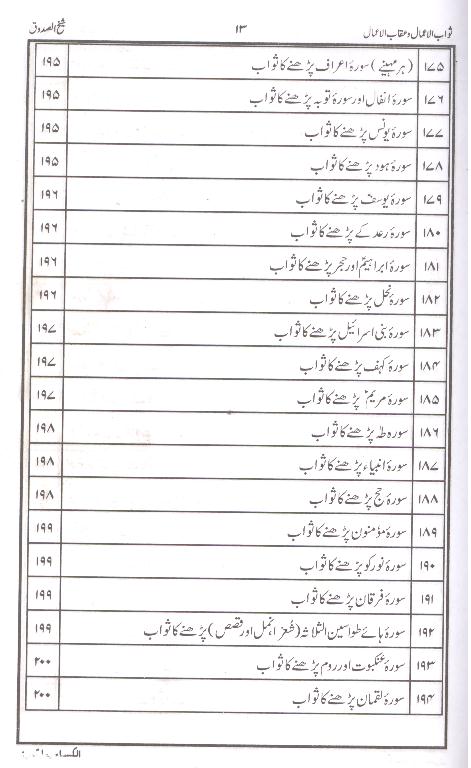 ثواب الاعمال و عقاب الاعمال ۱۳ شیخ الصدوق
۱۷۵ (ہر مہینے) سورۂ اعراف پڑھنے کا ثواب ۱۹۵
۱۷۶ سورۂ انفال اور سورۂ توبہ پڑھنے کا ثواب ۱۹۵
۱۷۷ سورۂ یونس پڑھنے کا ثواب ۱۹۵
۱۷۸ سورۂ ہود پڑھنے کا ثواب ۱۹۵
۱۷۹ سورۂ یوسف پڑھنے کا ثواب ۱۹۶
۱۸۰ سورۂ رعد کے پڑھنے کا ثواب ۱۹۶
۱۸۱ سورۂ ابراہیمؑ اور حجر پڑھنے کا ثواب ۱۹۶
۱۸۲ سورۂ نحل پڑھنے کا ثواب ۱۹۶
۱۸۳ سورۂ بنی اسرائیل پڑھنے کا ثواب ۱۹۷
۱۸۴ سورۂ کہف پڑھنے کا ثواب ۱۹۷
۱۸۵ سورۂ مریمؑ پڑھنے کا ثواب ۱۹۷
۱۸۶ سورہ طہٰ پڑھنے کا ثواب ۱۹۸
۱۸۷ سورۂ انبیاء پڑھنے کا ثواب ۱۹۸
۱۸۸ سورۂ حج پڑھنے کا ثواب ۱۹۸
۱۸۹ سورۂ مؤمنون پڑھنے کا ثواب ۱۹۹
۱۹۰ سورۂ نور کو پڑھنے کا ثواب ۱۹۹
۱۹۱ سورۂ فرقان پڑھنے کا ثواب ۱۹۹
۱۹۲ سورۂ ہائے طواسین الثلاثہ (شعراء، نمل اور قصص) پڑھنے کا ثواب ۱۹۹
۱۹۳ سورۂ عنکبوت اور روم پڑھنے کا ثواب ۲۰۰
۱۹۴ سورۂ لقمان پڑھنے کا ثواب ۲۰۰
الکساء